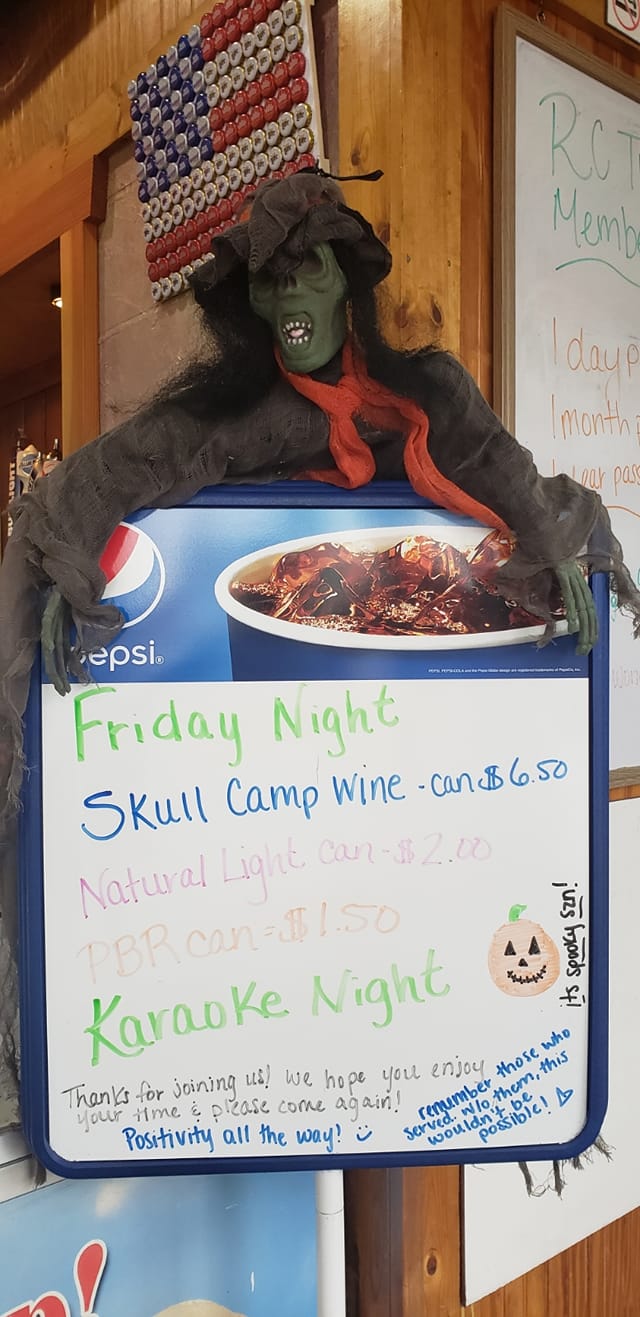 RC T
Memb
1 day p
1 month
1 year pass
pepsi®
Friday Night
Skull Camp Wine - can $6.50
Natural Light can - $2.00
PBR can = $1.50
it's spooky szn!
Karaoke Night
Thanks for joining us! We hope you enjoy
your time & please come again!
Positivity all the way!
remember those who
served. w/o them, this
wouldn't be
possible!